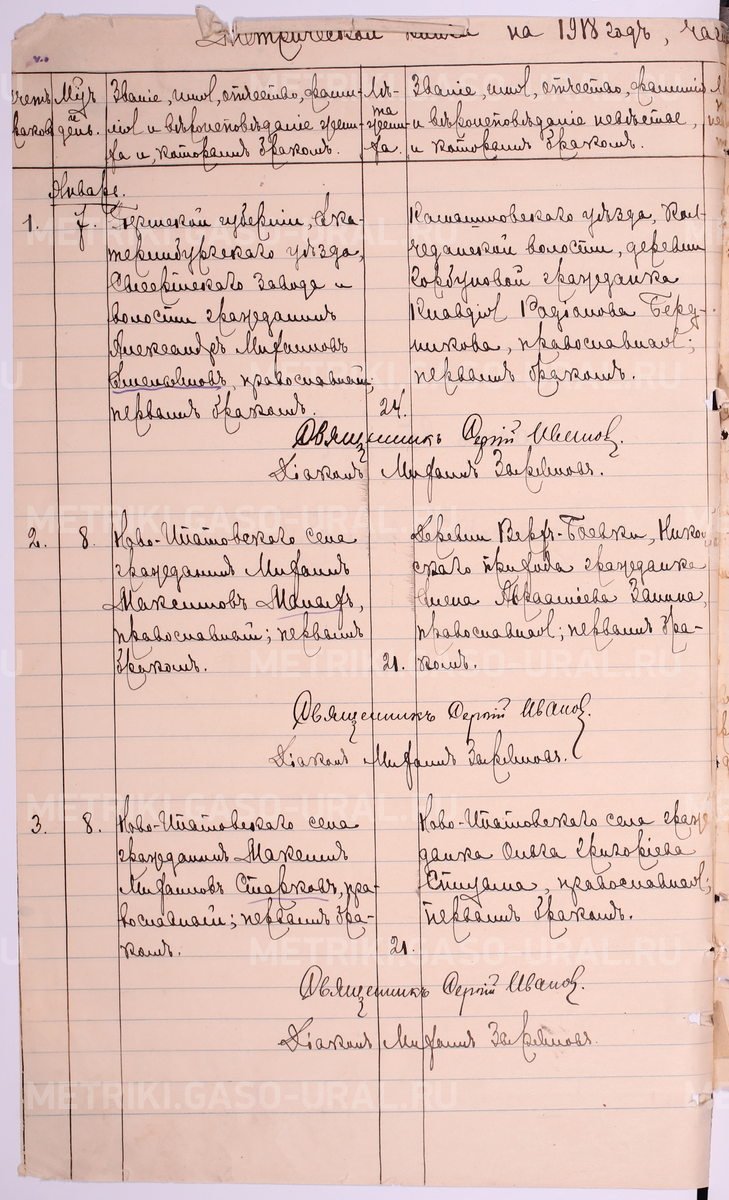 Метрической книги на 1918 годъ, час
счетъ браков
Мѣц. и день.
Званіе, имя, отчество, фами-
лія и вѣроисповѣданіе жени-
ха и, которымъ бракомъ.
Лѣ-
та
жени-
ха.
Званіе, имя, отчество, фамилія
и вѣроисповѣданіе невѣсты,
и которымъ бракомъ.
Январь.
1. 7. Пермской губерніи, Ека-
теринбургскаго уѣзда,
Сысертскаго завода и
волости гражданинъ
Александръ Михаиловъ
православный;
первымъ бракомъ.
24.
Камышловскаго уѣзда, Кол-
чеданской волости, деревни
Горбуновой гражданка
Клавдія Родіонова Берд-
никова, православная;
первымъ бракомъ.
Священникъ Сергій Ивановъ.
Діаконъ Михаилъ
2. 8. Ново-Ипатовскаго села
гражданинъ Михаилъ
Максимовъ
православный; первымъ
бракомъ.
21.
Деревни Верх-Боевки, Нико
скаго прихода гражданка
Елена Авраамиева Занина,
православная; первымъ бра-
комъ.
Священникъ Сергій Ивановъ.
Діаконъ Михаилъ
3. 8. Ново-Ипатовскаго села
гражданинъ Максимъ
Михаиловъ Старковъ, пра-
вославный; первымъ бра-
комъ.
21.
Ново-Ипатовскаго села граж
данка Ольга Григоріева
православная;
первымъ бракомъ.
Священникъ Сергій Ивановъ.
Діаконъ Михаилъ
METRIKI.GASO-URAL.RU